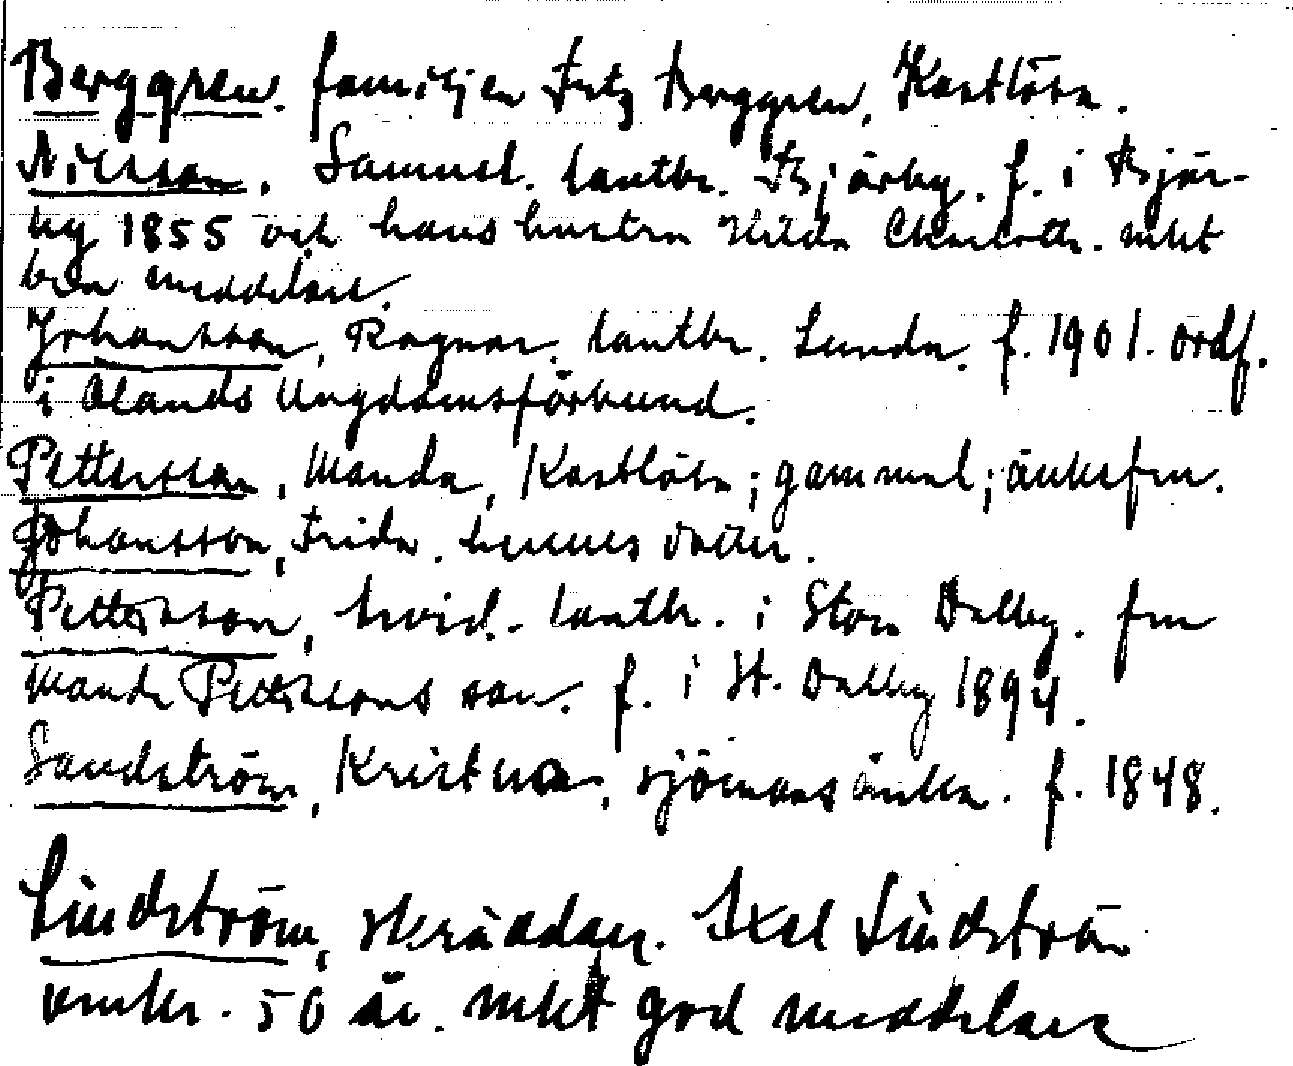 Berggren. familjen Fritz Berggren, Kastlösa.
Nilsson, Samuel. lantbr. Bjärby. f. i Bjär-
by 1855 och hans hustru Hilda Charlotta. mkt
bra meddelare.
Johansson, Ragnar. lantbr. Lunda. f. 1901. ordf.
i Ölands Ungdomsförbund.
Pettersson, Manda, Kastlösa; gammal; änkefru.
Johansson, Frida. hennes dotter.
Pettersson, lantbr. i Stora Dalby. fru
Manda Petterssons son. f. i St. Dalby 1894.
Sandström, Kristina, sjömansänka. f. 1848.
Lindström, skräddare. Axel Lindström
omkr. 50 år. mkt god meddelare